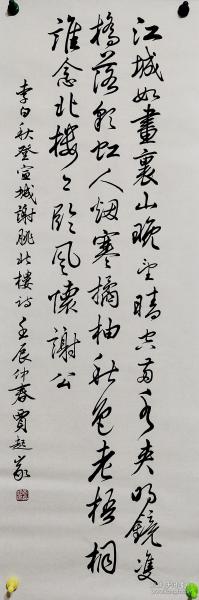 江城如畫裏山曉望晴空兩水夾明鏡雙
橋落彩虹人煙寒橘柚秋色老梧桐
誰念北樓上臨風懷謝公
李白秋登宣城謝朓北樓詩 壬辰仲春賈起家